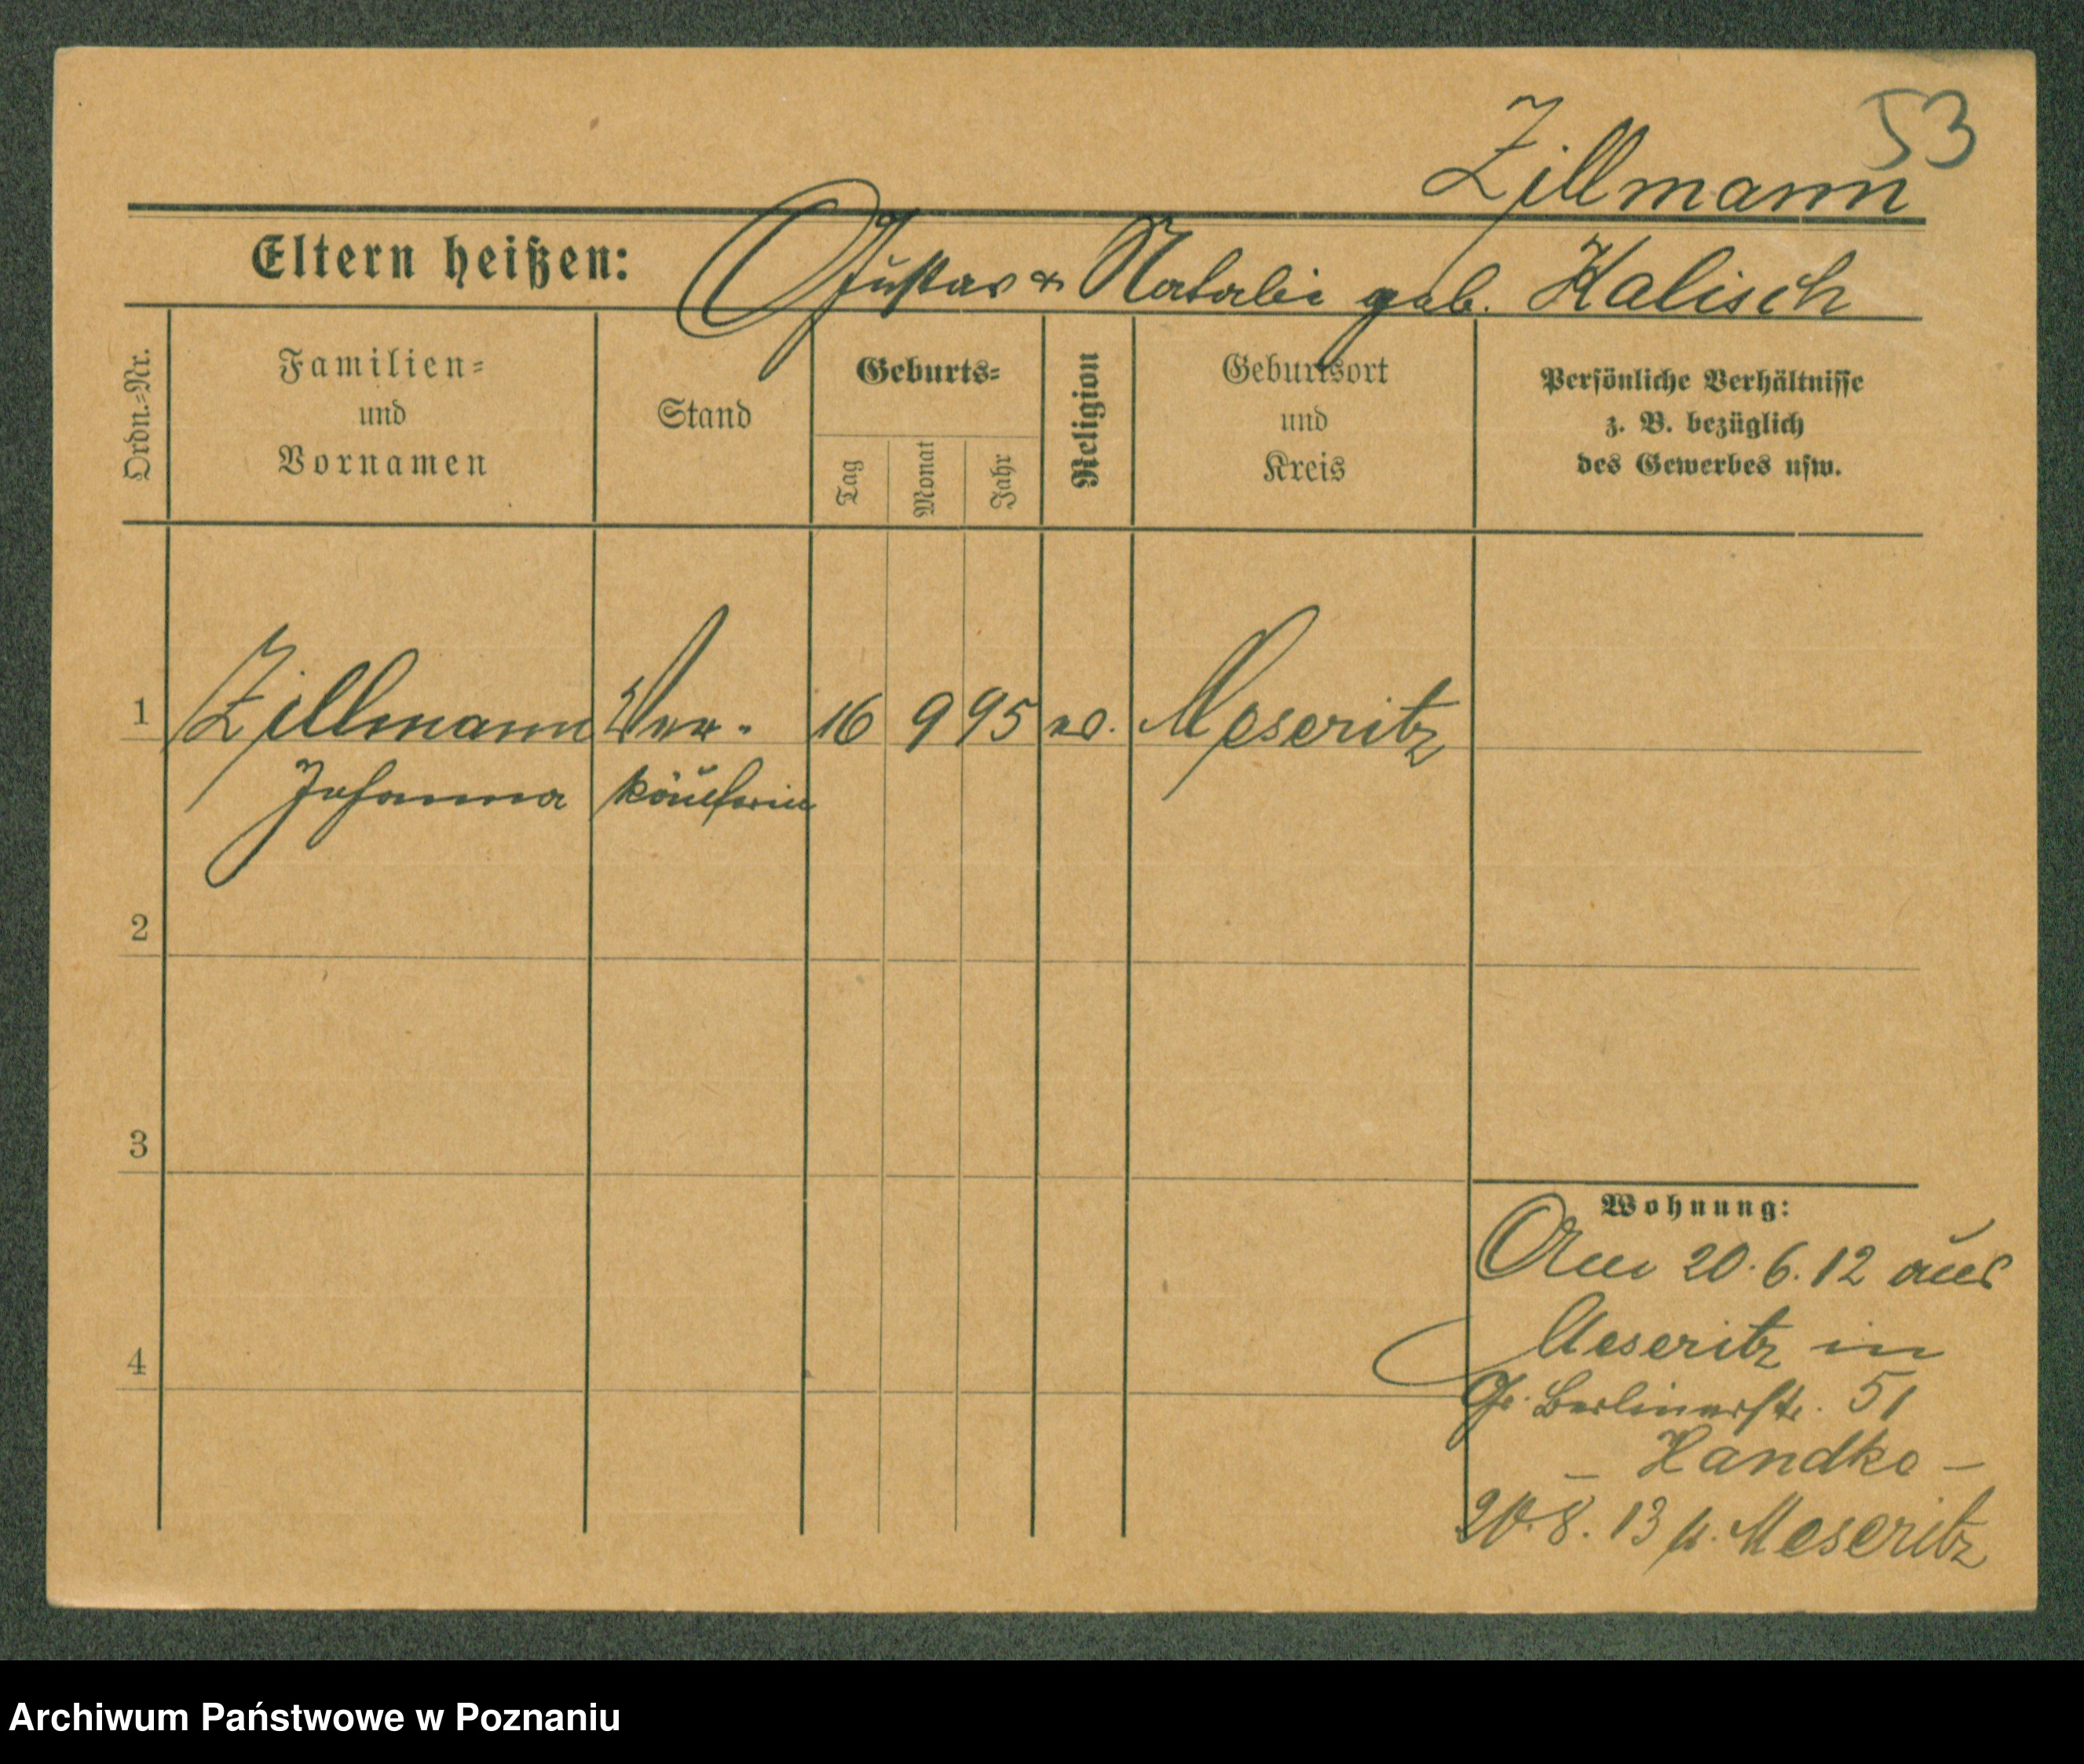 53
Zillmann
Eltern heißen: Gustav & Natalie geb. Kalisch
Ordn.=Nr.
Familien=
und
Vornamen
Stand
Geburts=
Tag
Monat
Jahr
Religion
Geburtsort
und
Kreis
Persönliche Verhältnisse
z. B. bezüglich
des Gewerbes usw.
1 Zillmann Ver- 16 9 95 ev. Meseritz
Johanna käuferin
2
3
4
Wohnung:
Am 20.6.12 aus
Meseritz in
Gr. Berlinerstr. 51
– Handke –
20.8.13 n. Meseritz
Archiwum Państwowe w Poznaniu